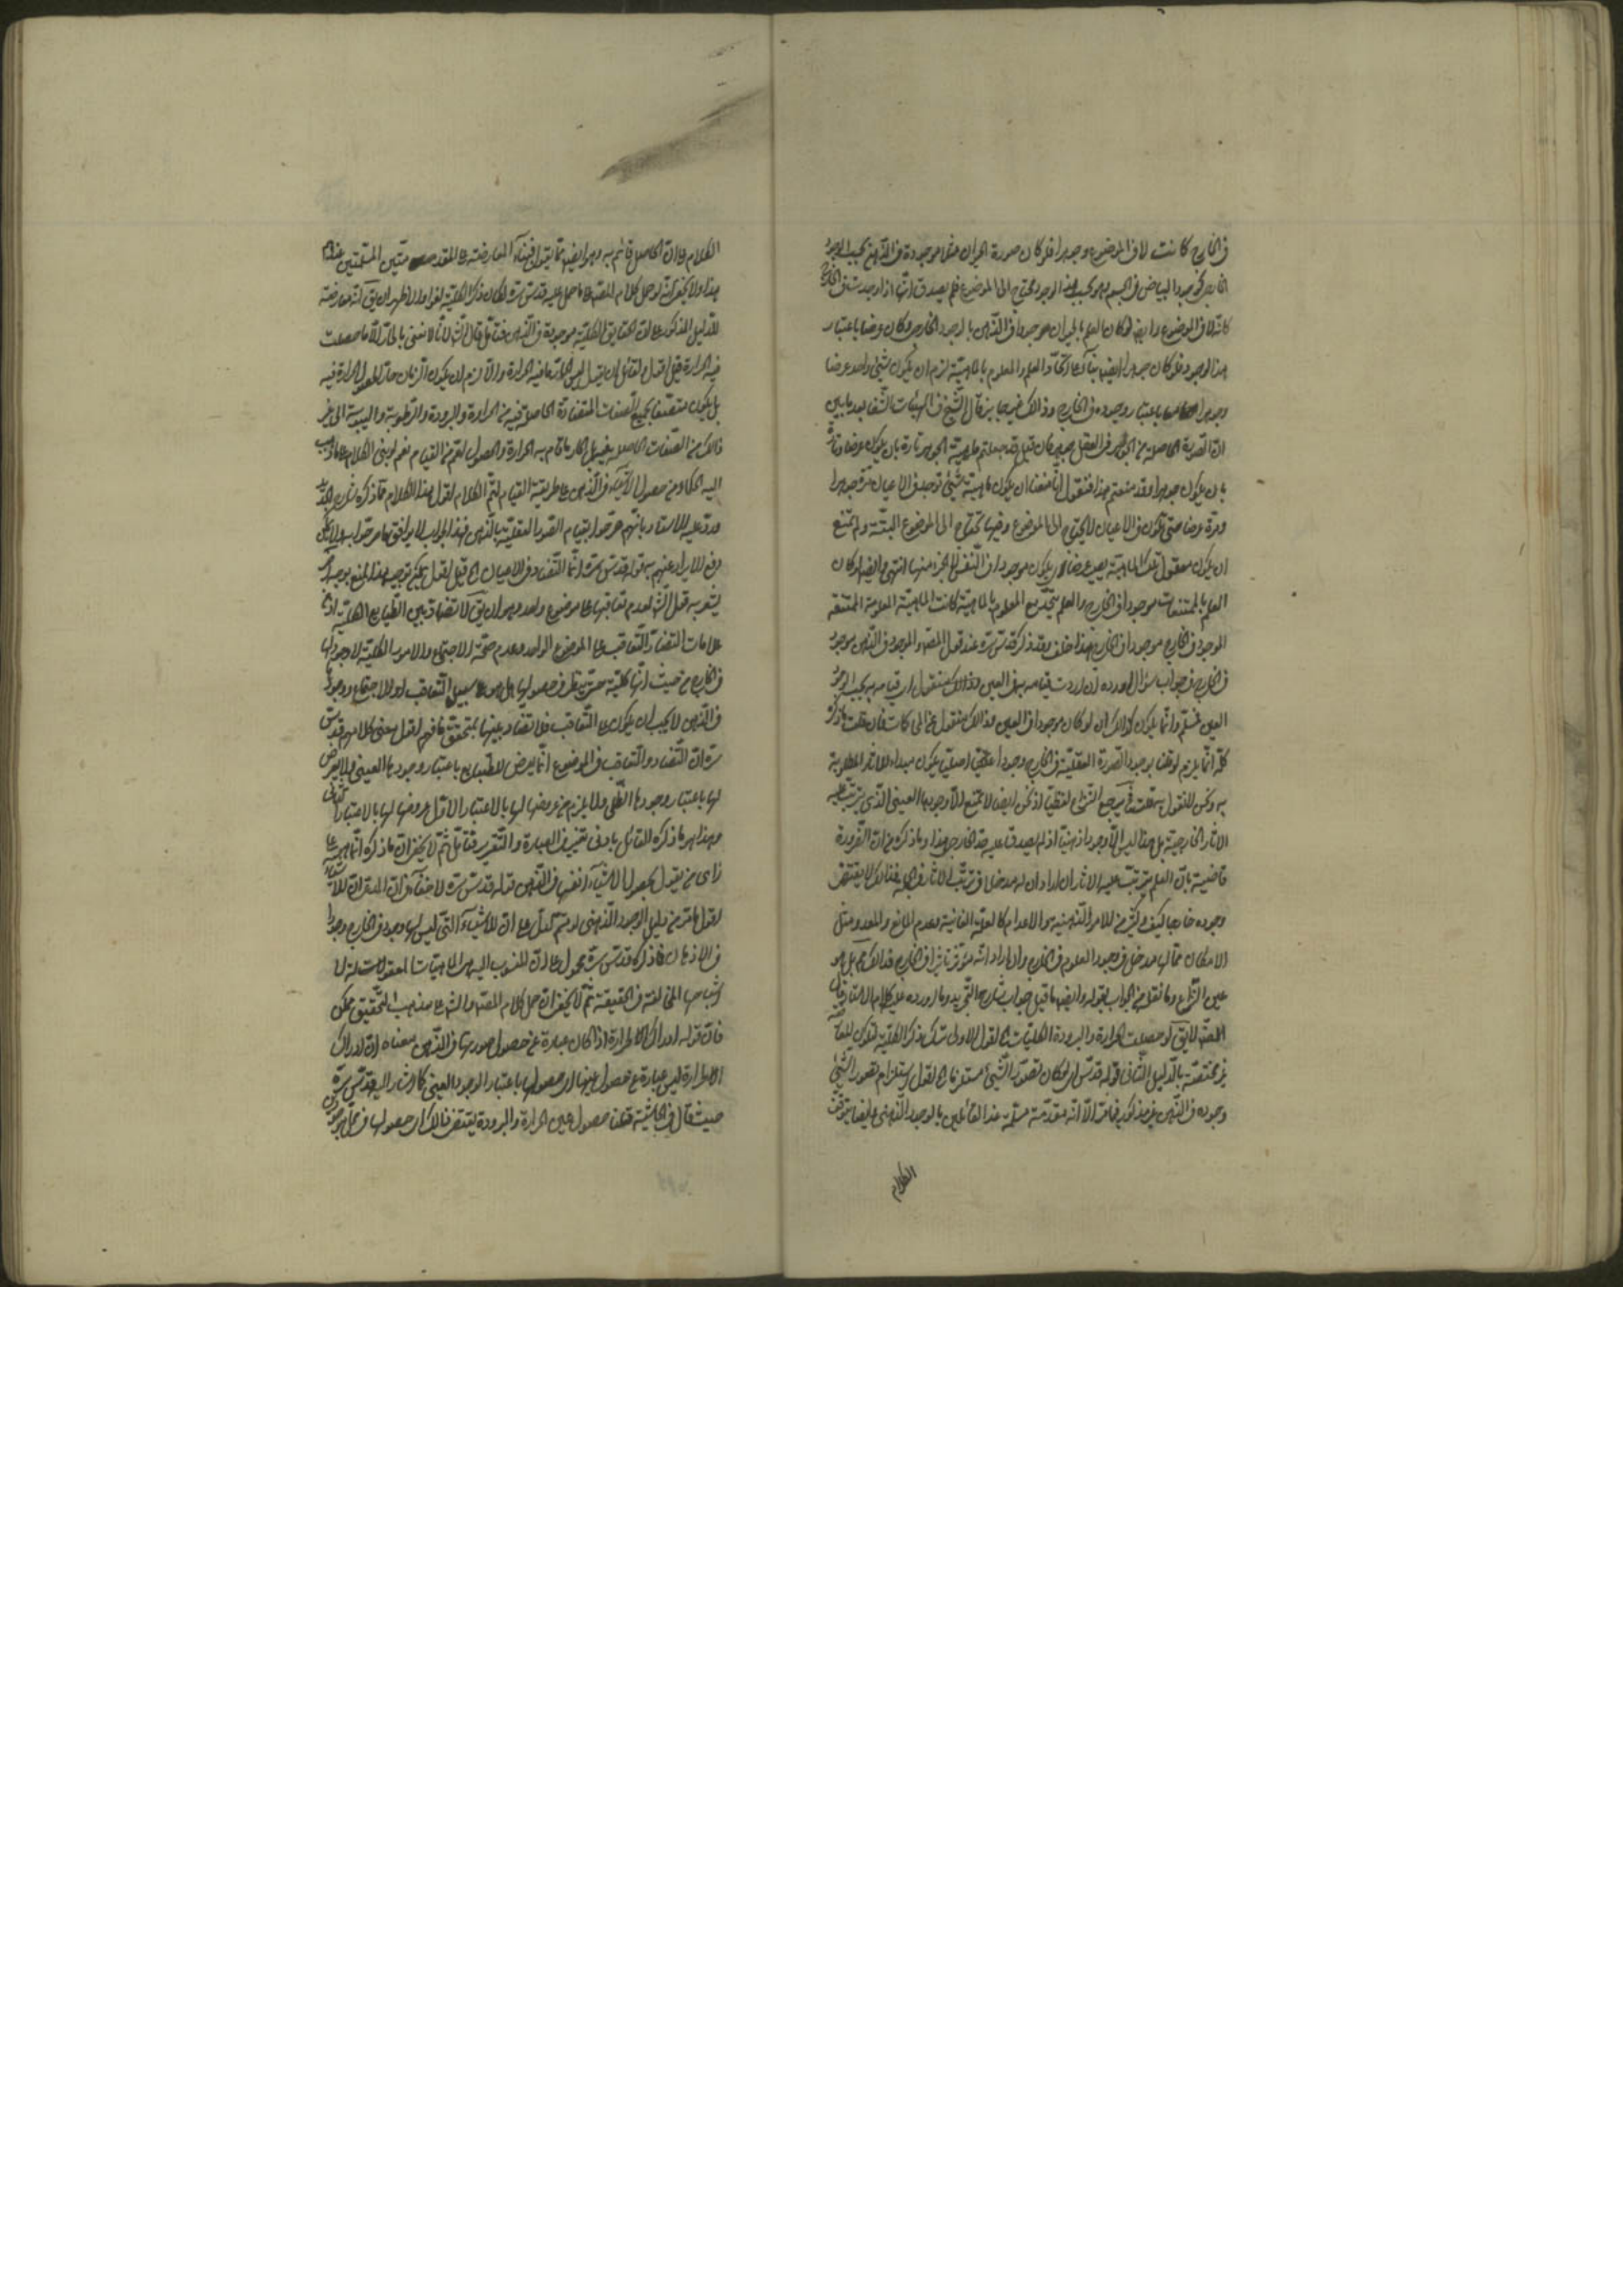 في الخارج كانت لا في الموضوع وجوهرا فلو كان صورة الحيوان مثلا موجودة في الذهن بحسب الوجود
الخارجي كوجود البياض في الجسم وهو بحسب هذا الوجود محتاج الى الموضوع فلم يصدق انها اذا وجدت في الخارج
كانت لا في الموضوع وايضا لو كان العلم بالحيوان موجودا في الذهن بالوجود الخارجي وكان عرضا باعتبار
هذا الوجود فلو كان جوهرا ايضا بناء على اتحاد العلم والمعلوم بالماهية لزم ان يكون شيء واحد عرضا
وجوهرا باعتبار وجوده في الخارج وذلك غير جايز قال الشيخ في الهيات الشفا بعد ما بين
ان الصورة الحاصلة من الجوهر في العقل جوهر فان قيل قد جعلتم ماهية الجوهر تارة بان يكون عرضا وتارة
بان يكون جوهرا وقد منعتم هذا فنقول انا منعنا ان يكون ماهية شيء توجد في الاعيان مرة جوهرا
ومرة عرضا حتى تكون في الاعيان لا يحتاج الى الموضوع وفيها تحتاج الى الموضوع البتة ولم نمنع
ان يكون معقول تلك الماهية يصير عرضا اي يكون موجودا في النفس لا كجزء منها انتهى وايضا لو كان
العلم بالممتنعات موجودا في الخارج والعلم متحد مع المعلوم بالماهية كانت الماهية المعلومة الممتنعة
الوجود في الخارج موجودا في الخارج هذا خلف وقد ذكر قدس سره عند قول المصنف والموجود في الذهن موجود
في الخارج في جواب سؤال اورده ان اردت قيامه به في العين
العين فمسلم وانما يكون كذلك ان لو كان موجودا في العين
كله انما يلزم لو قلنا بوجود الصورة العقلية في الخارج وجودا عينيا اصليا يكون مبداء للاثار المطلوبة
به ونحن لا نقول به قلت فيرجع النزاع لفظيا اذ نحن ايضا لا نمنع الا وجودها العيني الذي يترتب عليه
الاثار الخارجية بل هذا ليس الا وجودا ذهنيا اذ لم يصدق عليه حد الخارجي هذا وما ذكره من ان الضرورة
قاضية بان العلم يترتب عليه الاثار ان اراد ان له مدخلا في ترتب الاثار في الجملة فذلك لا يقتضي
وجوده خارجا كيف وكثير من الامور الذهنية والاعدام كالعلة الغائية وعدم المانع والمعد ومثل
الامكان مما لها مدخل في وجود المعلوم في الخارج وان اراد انه مؤثر تاثيرا في الخارج فذلك مم بل هو
عين النزاع وما نقل من الجواب بقوله وايضا ما قيل جواب شارح التجريد وما اورده عليه كلام الاستاد قال
المصنف لا يق لو حصلت الحرارة والبرودة الكليات اقول الاولى ترك ذكر الكلية لتكون المعارضة
غير مختصة بالدليل الثاني قوله قدس سره لو كان تصور الشيء مستلزما اقول استلزام تصور الشيء
وجوده في الذهن غير مذكور فيما مر الا انه مقدمة مسلمة عند القائلين بالوجود الذهني وايضا يتوقف
الكلام
الكلام على ان الحاصل قائم به وهو ايضا مما يتوافق بناء المعارضة على المقدمتين المسلمتين عندهم
هذا ولا يخفى انه لو حمل كلام المصنف على ما حمل عليه قدس سره لكان ذكر الكلية لغوا والاظهر ان يق انه معارضة
للدليل المذكور على ان الحقايق الكلية موجودة في الذهن فتامل قال الش لانا لا نعني بالحار الا ما حصلت
فيه الحرارة قيل اقول لقائل ان يقول ليس الحار ما فيه الحرارة والا لزم ان يكون الزمان حارا لحصول الحرارة فيه
بل يكون متصفا بجميع الصفات المتضادة الحاصلة فيه من الحرارة والبرودة والرطوبة واليبوسة الى غير
ذلك من الصفات الحاصلة فيه بل الحار ما قام به الحرارة والحصول اعم من القيام نعم لو بنى الكلام على ما ذهب
اليه الحكماء من حصول الاشياء في الذهن على طريقة القيام لتم الكلام اقول هذا الكلام مما ذكره شارح التجريد
ورد عليه الاستاد بانهم صرحوا بقيام الصور العقلية بالذهن فهذا الجواب لا يوافق ما صرحوا به ولا يمكن
دفع الايراد عنهم به قوله قدس سره انما التضاد في الاعيان الخ قيل اقول يمكن توجيه هذا المنع بوجه اخر
يشعر به قول الش لعدم تعاقبها على موضوع واحد وهو ان يق لا تضاد بين الطبايع الكلية اذ من
علامات التضاد التعاقب على الموضوع الواحد وعدم صحة الاجتماع والامور الكلية لا وجود لها
في الخارج من حيث انها كلية حتى ينظر في حصولها هل هو على سبيل التعاقب او الاجتماع ووجودها
في الذهن لا يجب ان يكون على التعاقب فلا تضاد بينها متحقق فافهم اقول معنى كلامه قدس
سره ان التضاد والتعاقب في الموضوع انما يعرض للطبايع باعتبار وجودها العيني ولا يعرض
لها باعتبار وجودها الظلي ولا يلزم من عروضها لها بالاعتبار الاول عروضها لها بالاعتبار الثاني
وهذا هو ما ذكره القائل بادنى تغيير في العبارة والتقرير فتامل ثم لا يخفى ان ما ذكره انما هو على
راى من يقول بحصول الاشياء انفسها في الذهن قوله قدس سره لا خفاء في ان المراد
اقول ما مر من دليل الوجود الذهني لو تم لدل على ان للاشياء التي ليس لها وجود في الخارج وجودا
في الاذهان فما ذكره قدس سره محمول على ان المنسوب اليه هو الماهيات المعقولات له لا
اشباحها المخالفة في الحقيقة ثم لا يخفى ان حمل كلام المصنف والش على مذهب التحقيق ممكن
فان قوله ادراك الحرارة اذا كان عبارة عن حصول صورتها في الذهن معناه ان ادراك
الحرارة ليس عبارة عن حصول عينها اي حصولها باعتبار الوجود العيني كما اشار اليه قدس سره
حيث قال في الحاشية قلنا حصول عين الحرارة والبرودة يقتضي ذلك اي حصولها في محل